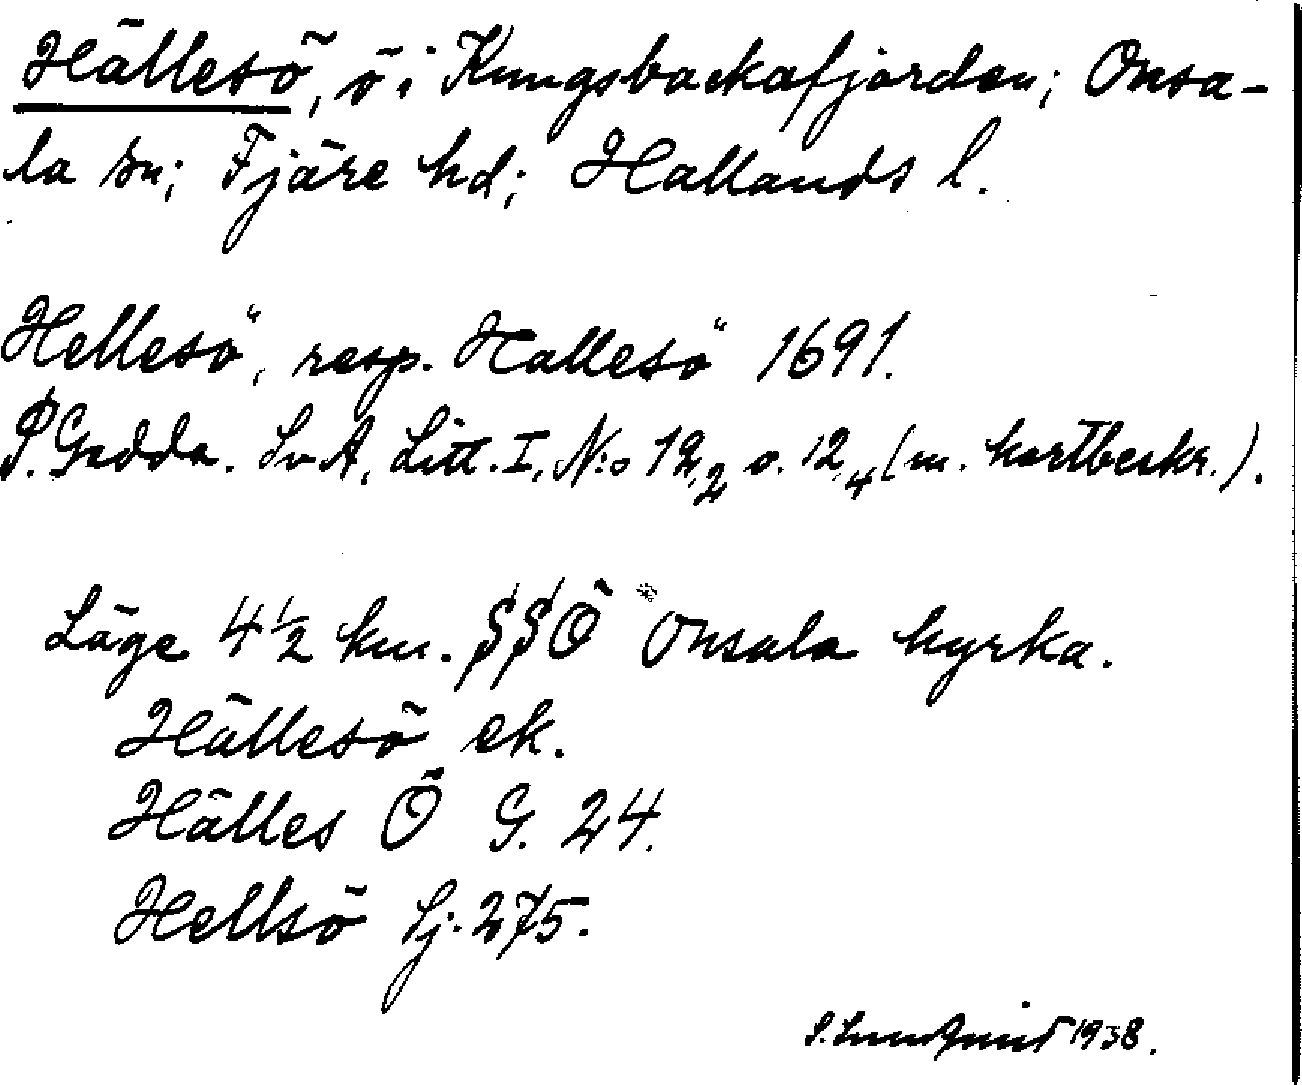 Hällesö, ö i Kungsbackafjorden; Onsa-
la sn; Fjäre hd; Hallands l.
Hellesö, resp. Hallesö 1691.
P. Gedda. SvA, Litt. I, N:o 12,2 o. 12,4 (m. kortbeskr.).
Läge 4 1/2 km. SSÖ Onsala kyrka.
Hällesö ek.
Hälles Ö G. 24.
Hellsö Sj. 275.
S. Lundquist 1938.